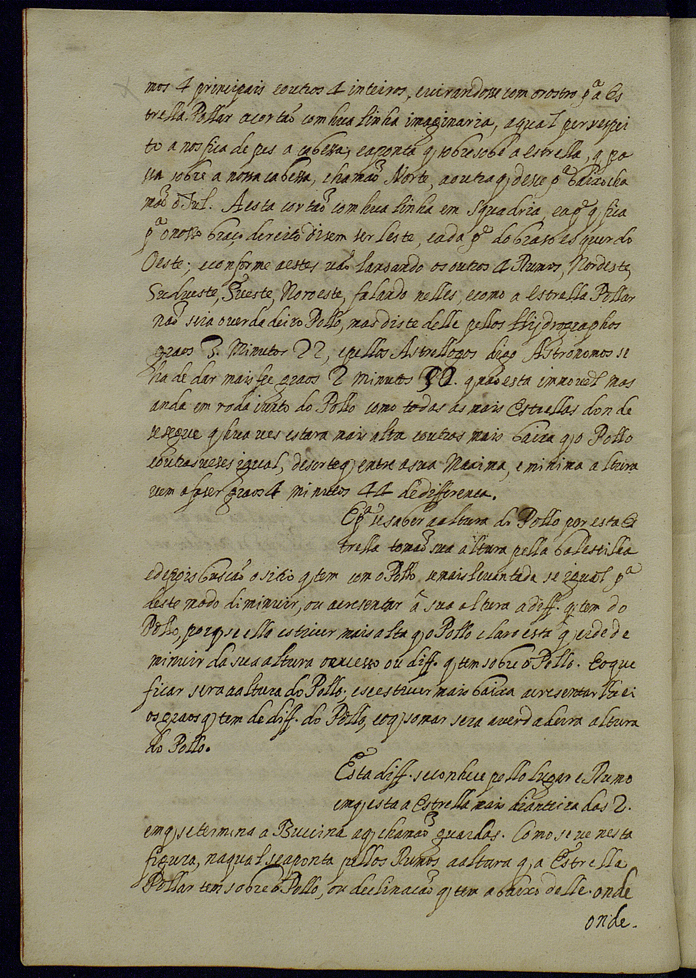 mos 4 principais e outros 4 inteiros, e virandose com o rostro pª a Es
trella Pollar a cortaõ com hua linha imaginaria, a qual per respei
to a nos fica de pes a cabessa, e a ponta q̃ sobre sobe a Estrella, q̃ pa
ssa sobre a nossa cabessa, chamaõ Norte, a outra q̃ desse pª baixo cha
maõ o Sul. A esta cortaõ com hua linha em Squadria, e a q̃ fica
pª o nosso braço dereito dizem ser leste, e a da pª do braso esquerdo
Oeste; e conforme a estes vaõ lansando os outros 4 Rumos, Nordeste,
Sudueste, Sueste, Noroeste, falando nelles, e como a Estrella Pollar
naõ seia o verdadeiro Pollo, mas diste delle pellos Hijdrographos
graos 3. Minutos 22, e pellos Astrellogos digo Astronomos se
ha de dar mais graos 2 minutos 50. q̃ naõ esta immovel mas
anda em roda iunto do Pollo como todas as mais Estrellas don de
se segue q̃ hua ves estara mais alta e outras mais baixa q̃ o Pollo
e outras vezes igual, de sorte q̃ entre a sua Maxima, e minima altura
vem a faser graos 4 minutos 44 de differença.
E pª se saber a altura do Pollo por esta Es
trella tomaõ sua altura pella balestilha
e depois buscaõ o sitio q̃ tem com o Pollo, e mais levantada se igual pª
deste modo diminuir, ou acresentar â sua altura a diff. q̃ tem do
Pollo, porq̃ se ello estiver mais alta q̃ o Pollo claro esta q̃ se de de
minuir da sua altura o excesso ou diff. q̃ tem sobre o Pollo. E o que
ficar sera a altura do Pollo, e se estiver mais baixa acresentar lhe ei
os graos q̃ tem de diff. do Pollo, e o q̃ somar sera a verdadeira altura
do Pollo.
Esta diff. se conhece pello lugar e Rumo
em q̃ esta a Estrella mais dianteira das 2.
em q̃ se termina a Buccina a q̃ chamaõ guardas. Como se ve nesta
figura, na qual se aponta pellos Rumos a altura q̃ a Estrella
Pollar tem sobre o Pollo, ou declinacaõ q̃ tem a baixo delle. onde
onde.